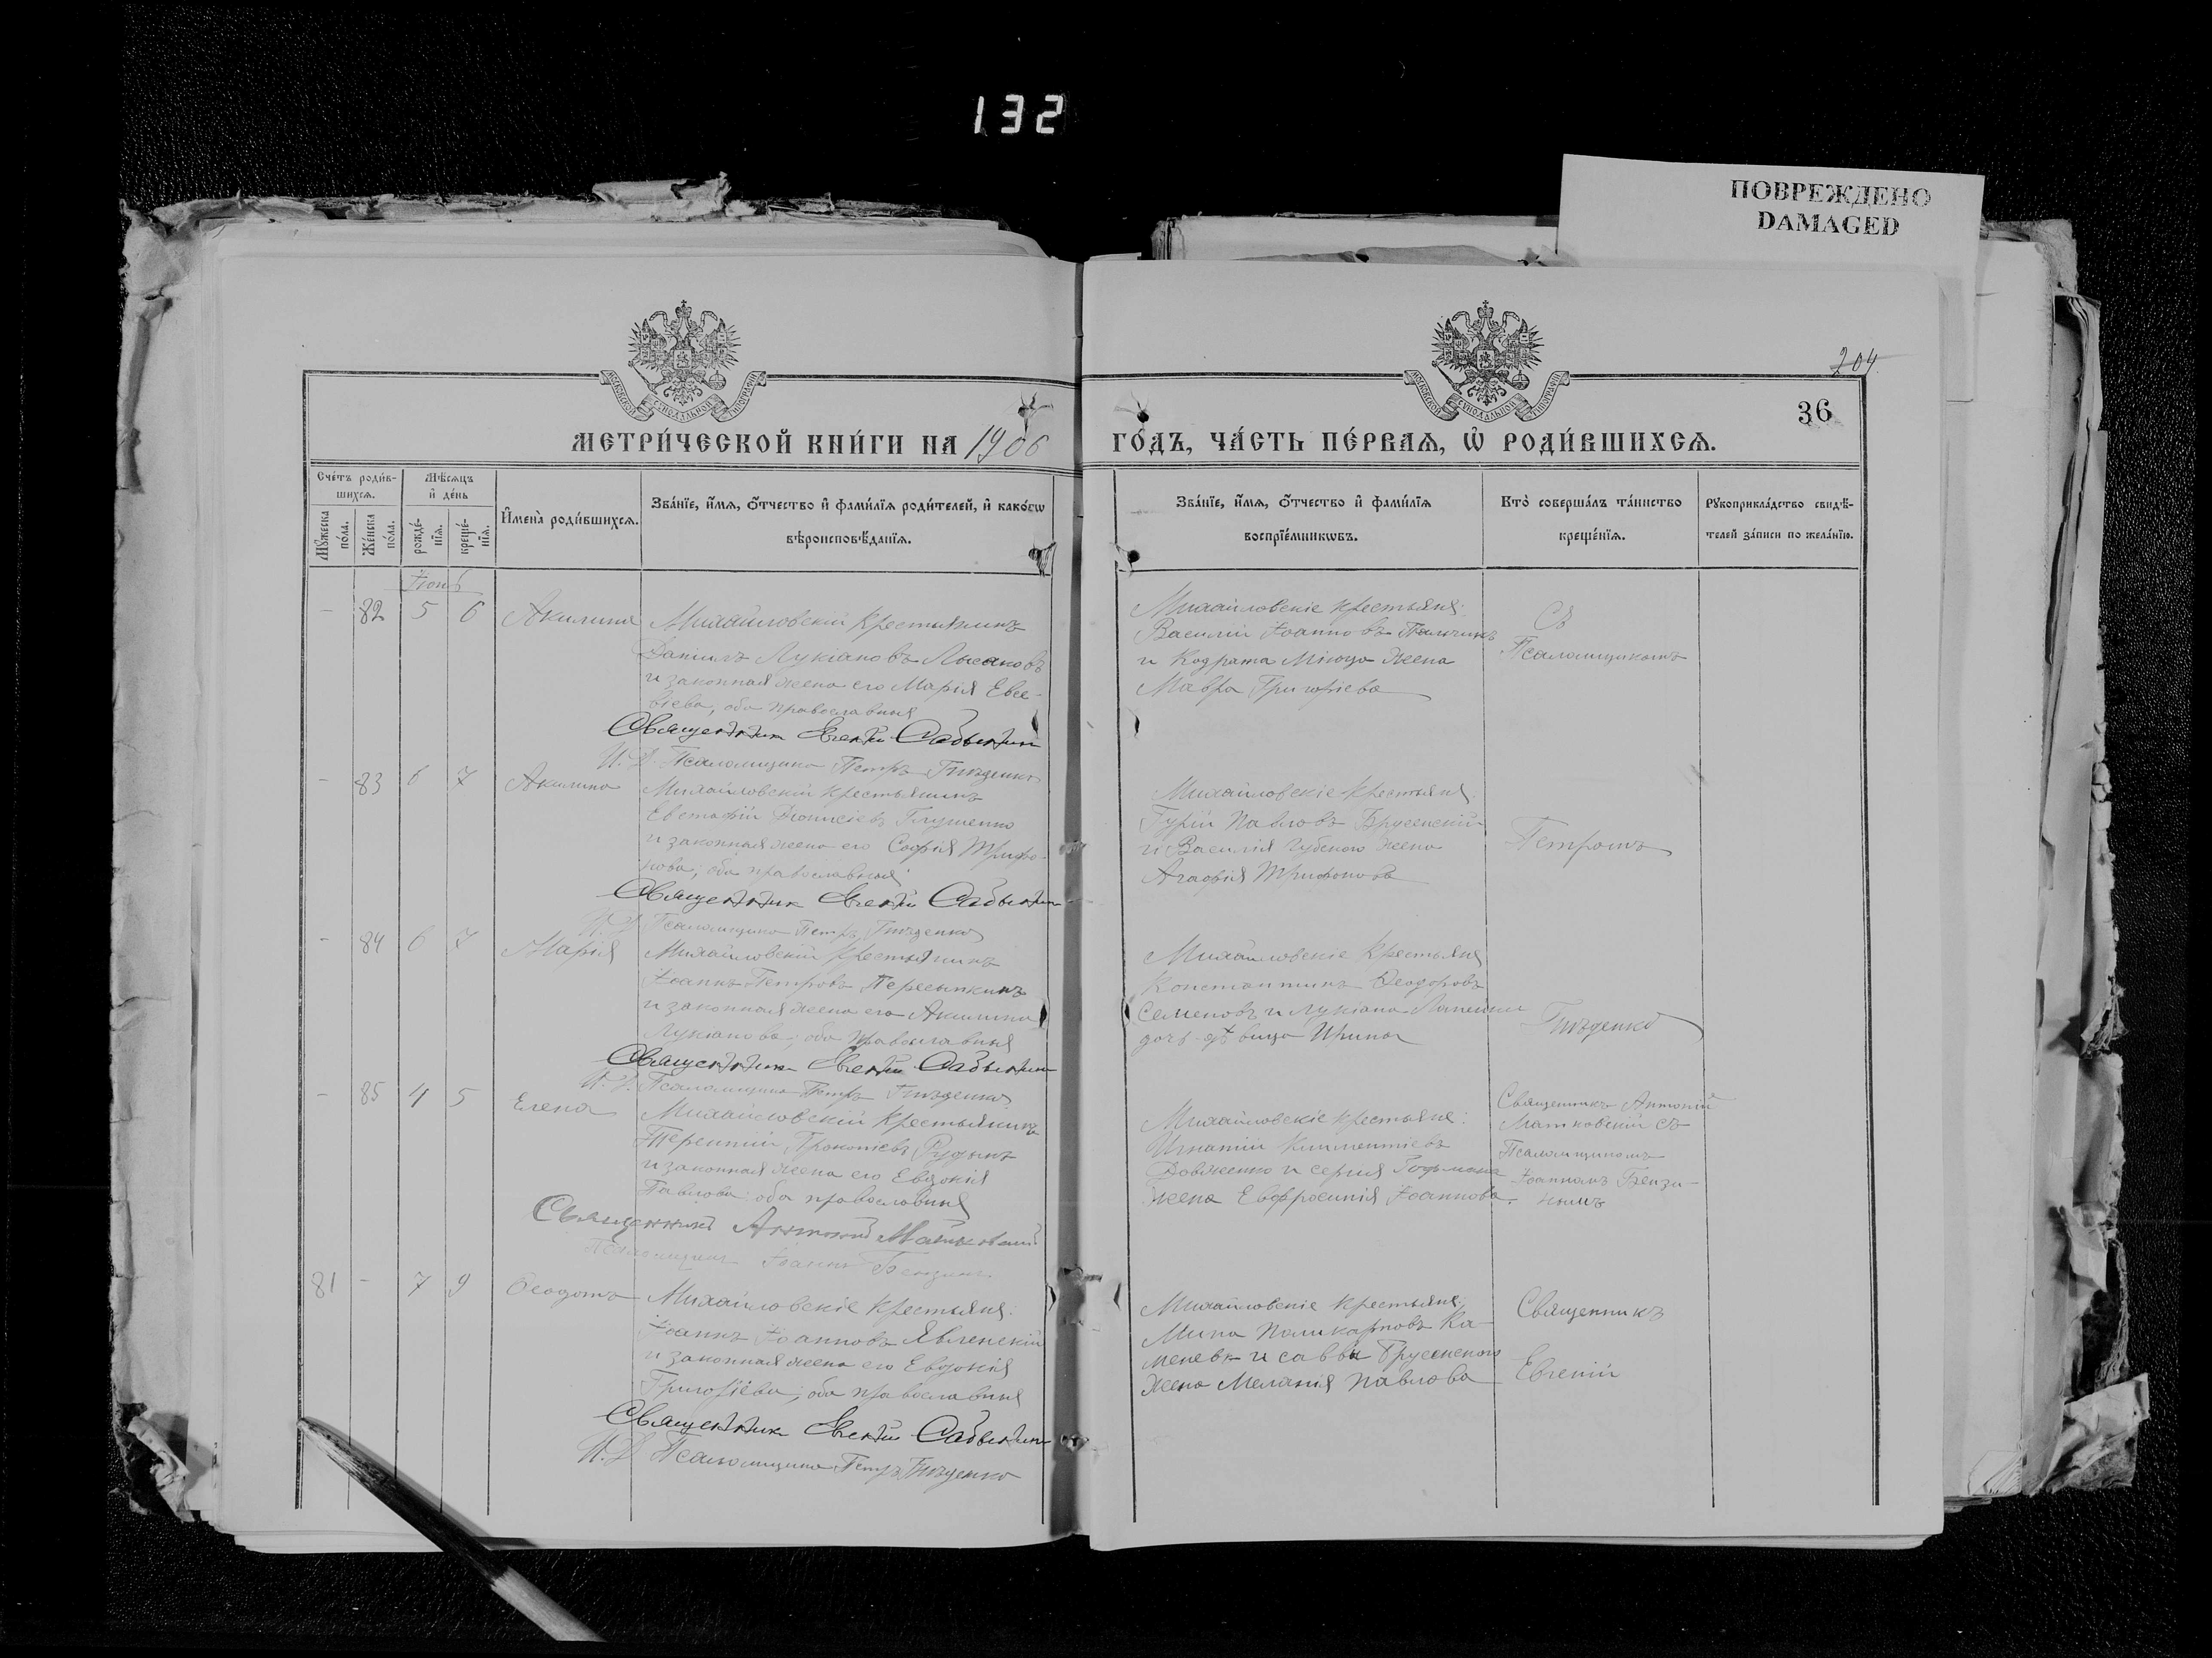 132
ПОВРЕЖДЕНО
DAMAGED
204.
36
МОСКОВСКОЙ СѴНОДАЛЬНОЙ ТИПОГРАФІИ
МОСКОВСКОЙ СѴНОДАЛЬНОЙ ТИПОГРАФІИ
МЕТРИ́ЧЕСКОЙ КНИ́ГИ НА 1906
ГО́ДЪ, ЧА́СТЬ ПЕ́РВАѦ, Ѡ҆ РОДИ́ВШИХСѦ.
Сче́тъ роди́в-
шихсѧ.
Мѣ́сѧцъ
и҆ де́нь
Мꙋ́жеска
по́ла.
Же́нска
по́ла.
рожде́-
нїѧ.
креще́-
нїѧ.
И҆мена̀ роди́вшихсѧ.
Зва́нїе, и҆́мѧ, ѻ҆́тчество и҆ фами́лїѧ роди́телей, и҆ како́гѡ
вѣроисповѣ́данїѧ.
Зва́нїе, и҆́мѧ, ѻ҆́тчество и҆ фами́лїѧ
воспрїе́мникѡвъ.
Кто̀ соверша́лъ та́инство
креще́нїѧ.
Рꙋкоприкла́дство свидѣ́-
телей за́писи по жела́нїю.
Іюнь
- 82 5 6 Акилина
Михайловскій крестьянинъ
Даніилъ Лукіановъ Лысаковъ
и законная жена его Марія Евсе-
віева, оба православныя
Священник Евгеній Савынин
И. Д. Псаломщика Петръ Гнѣденко
Михайловскіе крестьяне:
Василій Іоанновъ Пальчикъ
и Кодрата Міюца жена
Мавра Григоріева
Съ
Псаломщикомъ
- 83 6 7 Акилина
Михайловскій крестьянинъ
Евстафій Діонисіевъ Глушенко
и законная жена его Софія Трифо-
нова; оба православныя
Священник Евгеній Савынин
И. Д. Псаломщика Петръ Гнѣденко
Михайловскіе крестьяне:
Гурій Павловъ Брусенскій
и Василія Губского жена
Агафія Трифонова
Петромъ
- 84 6 7 Марія
Михайловскій крестьянинъ
Іоаннъ Петровъ Пересыпкинъ
и законная жена его Акилина
Лукіанова; оба православныя
Священник Евгеній Савынин
И. Д. Псаломщика Петръ Гнѣденко
Михайловскіе крестьяне
Константинъ Ѳеодоровъ
Семеновъ и Лукіана
дочь дѣвица Ирина
Гнѣденко
- 85 4 5 Елена
Михайловскій крестьянинъ
Терентій Прокопіевъ Рудынъ
и законная жена его Евдокія
Павлова: оба православныя
Священникъ Антоній Матковскій
Псаломщикъ Іоаннъ Бензинъ
Михайловскіе крестьяне:
Игнатій Климентіевъ
Довженко и Сергія
жена Евфросинія Іоаннова.
Священникъ Антоній
Матковскій съ
Псаломщикомъ
Іоанномъ Бензи-
нымъ
81 - 7 9 Ѳеодотъ
Михайловскіе крестьяне:
Іоаннъ Іоанновъ Явленскій
и законная жена его Евдокія
Григоріева; оба православныя
Священник Евгеній Савынин
И. Д. Псаломщика Петръ Гнѣденко
Михайловскіе крестьяне:
Мина Поликарповъ Ка-
меневъ и Саввы Брусенскаго
жена Меланія Павлова
Священникъ
Евгеній